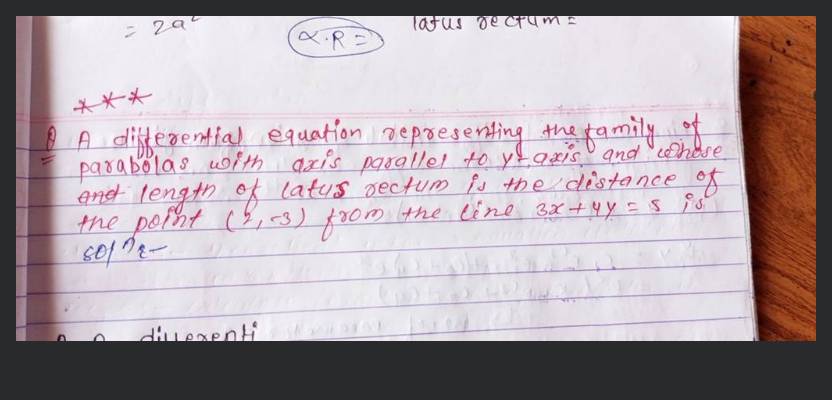 = 2a²
L.R =
latus rectum =
***
Q A differential equation representing the family of
parabolas with axis parallel to y-axis and whose
and length of latus rectum is the distance of
the point (2,-3) from the line 3x+4y = 5 is
solⁿ:-
differenti